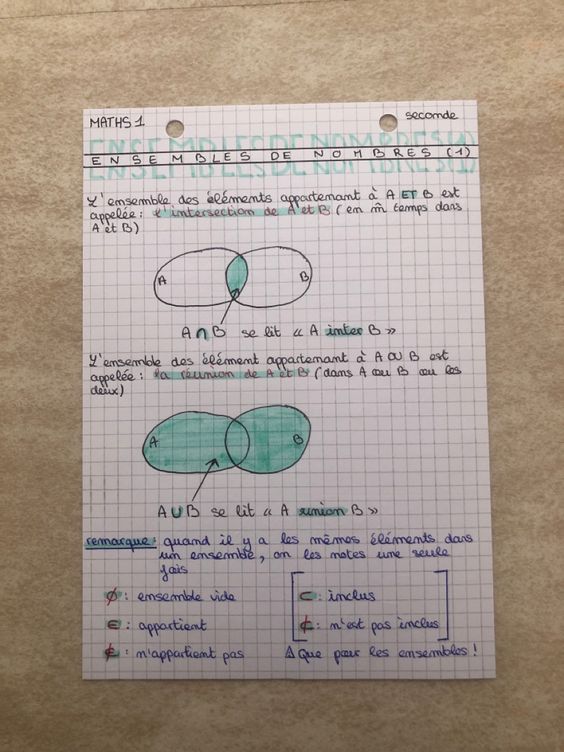 MATHS 1
seconde
ENSEMBLES DE NOMBRES (1)
ENSEMBLES DE NOMBRES (1)
L'ensemble des éléments appartenant à A ET B est
appelée : l'intersection de A et B ( en m̂ temps dans
A et B)
A
B
A ∩ B se lit « A inter B »
L'ensemble des élément appartenant à A OU B est
appelée : la réunion de A et B (dans A ou B ou les
deux)
A
B
A ∪ B se lit « A union B »
remarque : quand il y a les mêmes éléments dans
un ensemble, on les notes une seule
fois
∅ : ensemble vide
⊂ : inclus
∈ : appartient
⊄ : n'est pas inclus
∉ : n'appartient pas
⚠ Que pour les ensembles !